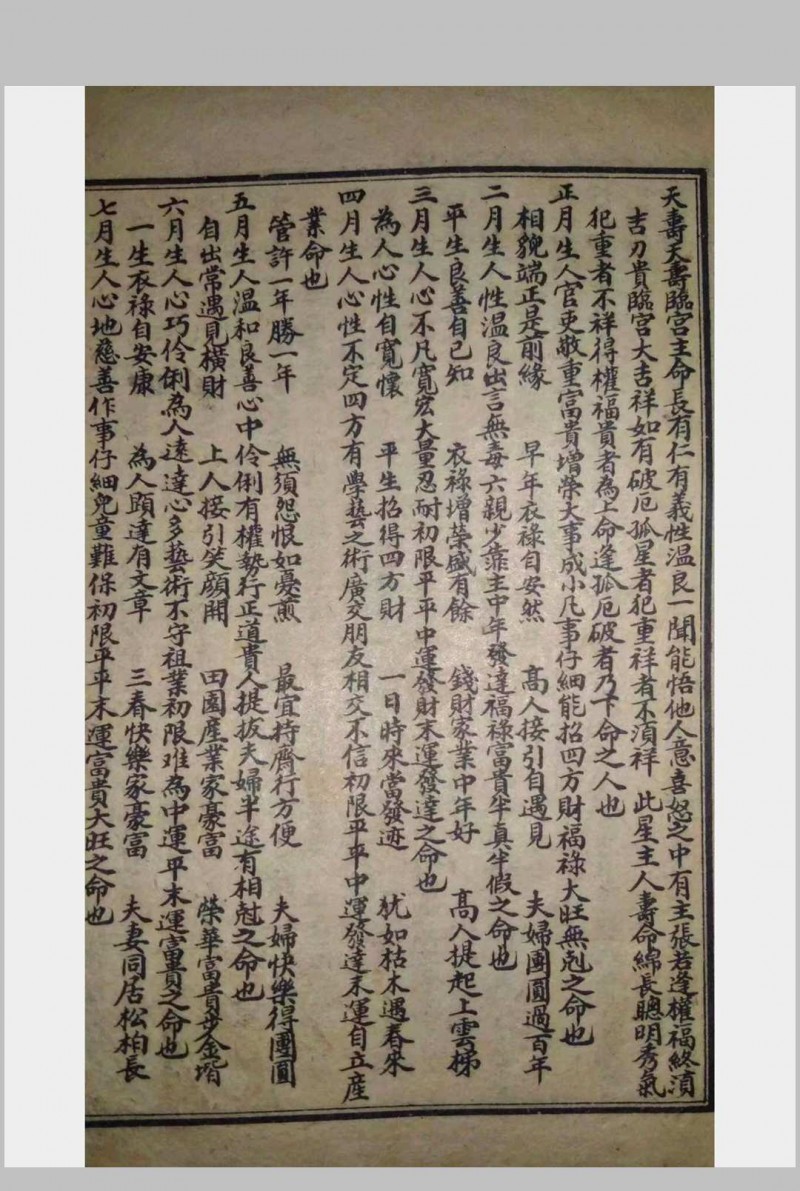 天壽天壽臨宮主命長有仁有義性溫良一聞能悟他人意喜怒之中有主張若逢權福終湏
吉刃貴臨宮大吉祥如有破厄孤星者犯重祥者不湏祥 此星主人壽命綿長聰明秀氣
犯重者不祥得權福貴者為上命逢孤厄破者乃下命之人也
正月生人官吏敬重富貴增榮大事成小凡事仔細能招四方財福祿大旺無剋之命也
相貌端正是前緣 早年衣祿自安然 高人接引自遇見 夫婦團圓過百年
二月生人性溫良出言無毒六親少靠主中年發達福祿富貴半真半假之命也
平生良善自己知 衣祿增榮盛有餘 錢財家業中年好 高人提起上雲梯
三月生人心不凡寬宏大量忍耐初限平平中運發財末運發達之命也
為人心性自寬懷 平生招得四方財 一日時來當發迹 犹如枯木遇春來
四月生人心性不定四方有學藝之術廣交朋友相交不信初限平平中運發達末運自立産
業命也
管許一年勝一年 無須怨恨如憂煎 最宜持齋行方便 夫婦快樂得團圓
五月生人溫和良善心中伶俐有權勢行正道貴人提拔夫婦半途有相尅之命也
自出常遇見橫財 上人接引笑顔開 田園産業家豪富 榮華富貴步金堦
六月生人心巧伶俐為人遠達心多藝術不守祖業初限难為中運平末運富貴之命也
一生衣祿自安康 為人頭達有文章 三春快樂家豪富 夫妻同居松柏長
七月生人心地慈善作事仔細兒童難保初限平平末運富貴大旺之命也